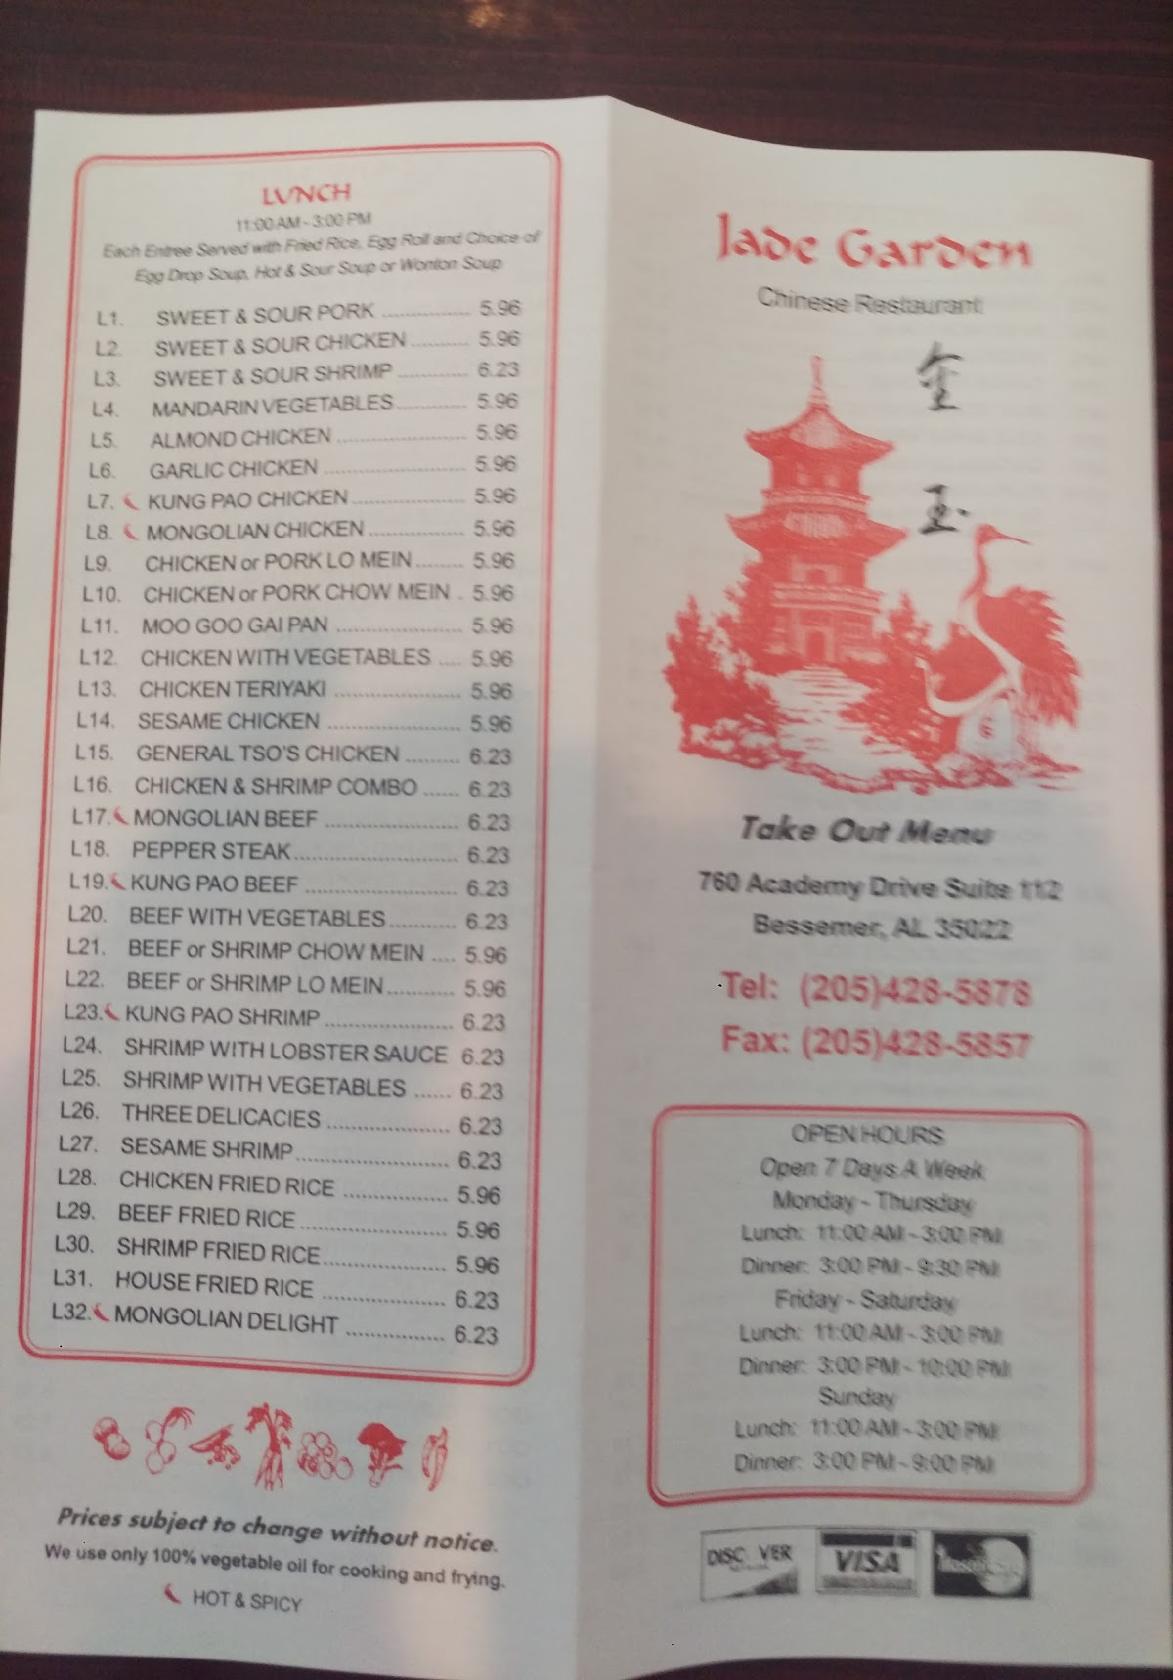 LUNCH
11:00 AM - 3:00 PM
Each Entree Served with Fried Rice, Egg Roll and Choice of
Egg Drop Soup, Hot & Sour Soup or Wonton Soup
L1. SWEET & SOUR PORK ................ 5.96
L2. SWEET & SOUR CHICKEN .......... 5.96
L3. SWEET & SOUR SHRIMP ............ 6.23
L4. MANDARIN VEGETABLES ............ 5.96
L5. ALMOND CHICKEN ...................... 5.96
L6. GARLIC CHICKEN ........................ 5.96
L7. KUNG PAO CHICKEN ................... 5.96
L8. MONGOLIAN CHICKEN ................ 5.96
L9. CHICKEN or PORK LO MEIN ........ 5.96
L10. CHICKEN or PORK CHOW MEIN . 5.96
L11. MOO GOO GAI PAN ..................... 5.96
L12. CHICKEN WITH VEGETABLES .... 5.96
L13. CHICKEN TERIYAKI ..................... 5.96
L14. SESAME CHICKEN ...................... 5.96
L15. GENERAL TSO'S CHICKEN ......... 6.23
L16. CHICKEN & SHRIMP COMBO ...... 6.23
L17. MONGOLIAN BEEF ...................... 6.23
L18. PEPPER STEAK ........................... 6.23
L19. KUNG PAO BEEF ......................... 6.23
L20. BEEF WITH VEGETABLES ........... 6.23
L21. BEEF or SHRIMP CHOW MEIN .... 5.96
L22. BEEF or SHRIMP LO MEIN ........... 5.96
L23. KUNG PAO SHRIMP ..................... 6.23
L24. SHRIMP WITH LOBSTER SAUCE 6.23
L25. SHRIMP WITH VEGETABLES ...... 6.23
L26. THREE DELICACIES .................... 6.23
L27. SESAME SHRIMP ......................... 6.23
L28. CHICKEN FRIED RICE ................. 5.96
L29. BEEF FRIED RICE ........................ 5.96
L30. SHRIMP FRIED RICE .................... 5.96
L31. HOUSE FRIED RICE .................... 6.23
L32. MONGOLIAN DELIGHT ................ 6.23
Prices subject to change without notice.
We use only 100% vegetable oil for cooking and frying.
HOT & SPICY
Jade Garden
Chinese Restaurant
金
玉
Take Out Menu
760 Academy Drive Suite 112
Bessemer, AL 35022
Tel: (205)428-5878
Fax: (205)428-5857
OPEN HOURS
Open 7 Days A Week
Monday - Thursday
Lunch: 11:00 AM - 3:00 PM
Dinner: 3:00 PM - 9:30 PM
Friday - Saturday
Lunch: 11:00 AM - 3:00 PM
Dinner: 3:00 PM - 10:00 PM
Sunday
Lunch: 11:00 AM - 3:00 PM
Dinner: 3:00 PM - 9:00 PM
DISCOVER
VISA